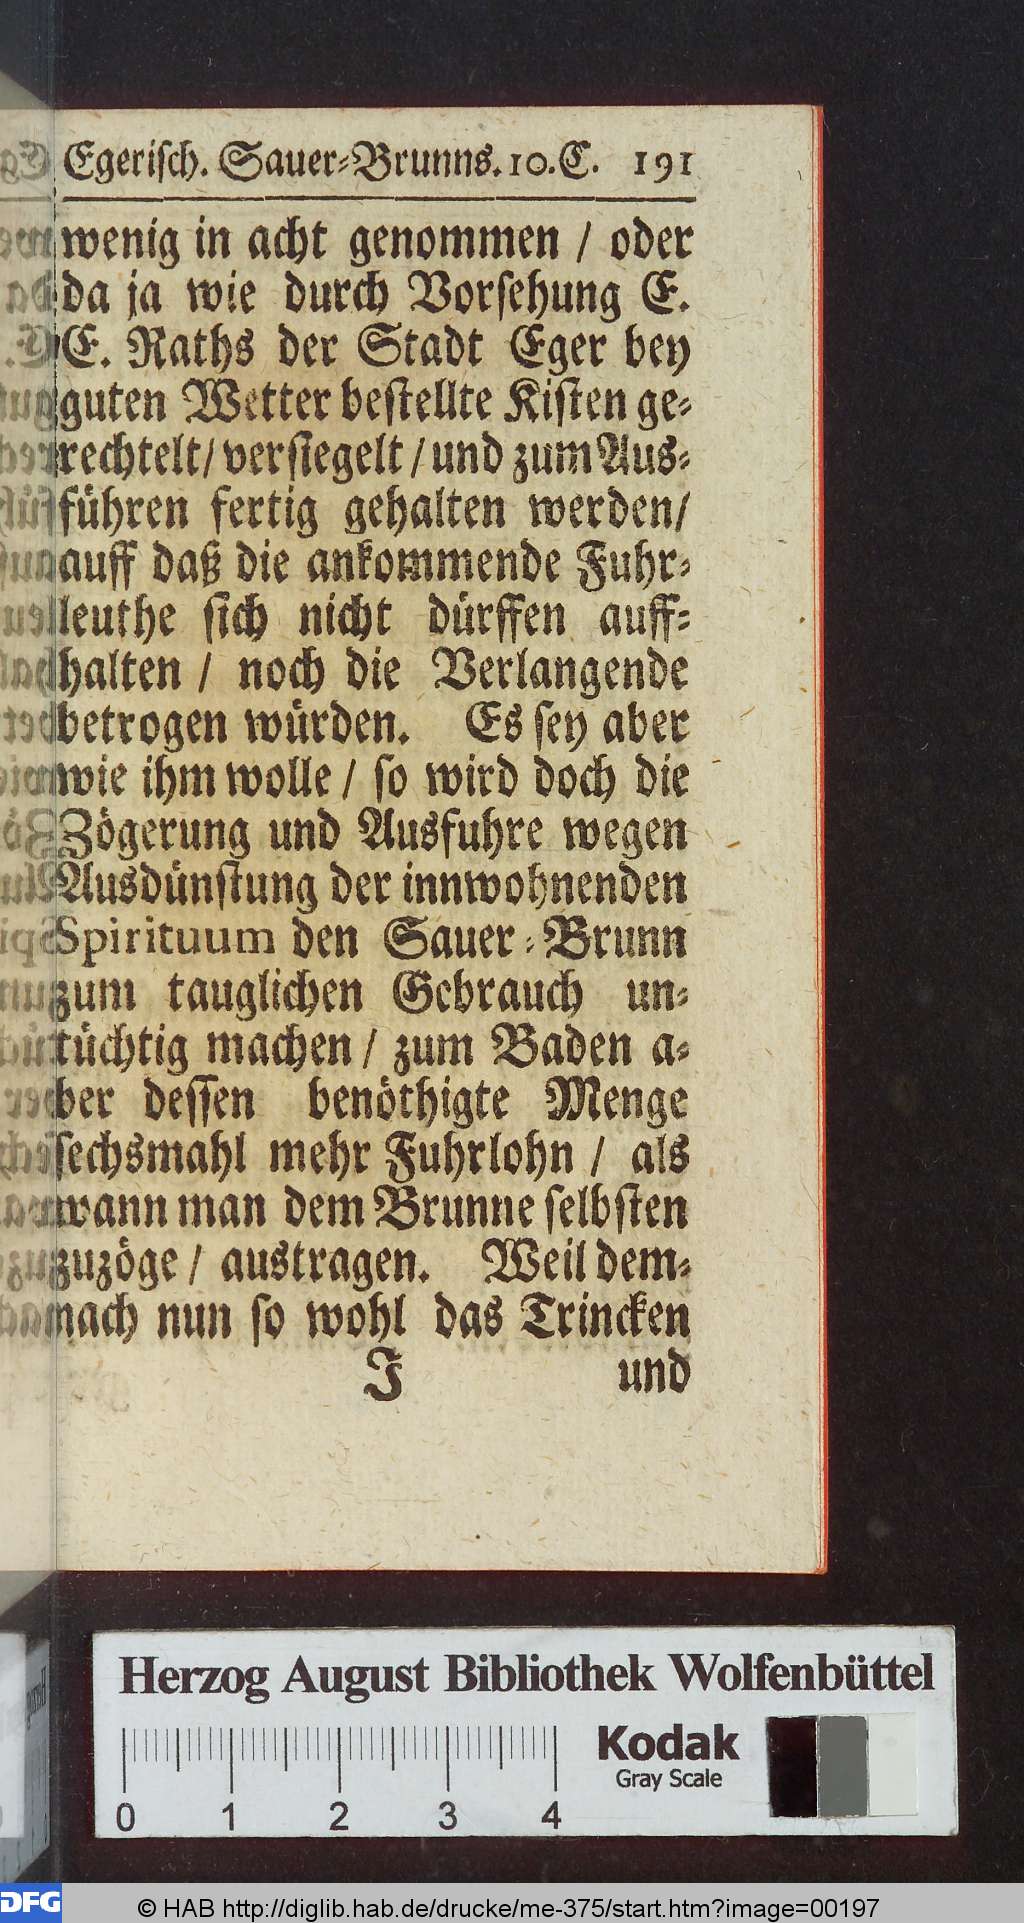 Egerisch. Sauer-Brunns. 10. C. 191
wenig in acht genommen / oder
da ja wie durch Vorsehung E.
E. Raths der Stadt Eger bey
guten Wetter bestellte Kisten ge-
rechtelt/ versiegelt / und zum Aus-
führen fertig gehalten werden/
auff daß die ankommende Fuhr-
leuthe sich nicht dürffen auff-
halten / noch die Verlangende
betrogen würden. Es sey aber
wie ihm wolle / so wird doch die
Zögerung und Ausfuhre wegen
Ausdünstung der innwohnenden
Spirituum den Sauer-Brunn
zum tauglichen Gebrauch un-
tüchtig machen / zum Baden a-
ber dessen benöthigte Menge
sechsmahl mehr Fuhrlohn / als
wann man dem Brunne selbsten
zuzöge / austragen. Weil dem-
nach nun so wohl das Trincken
J und
Herzog August Bibliothek Wolfenbüttel
Kodak
Gray Scale
0 1 2 3 4
DFG © HAB http://diglib.hab.de/drucke/me-375/start.htm?image=00197